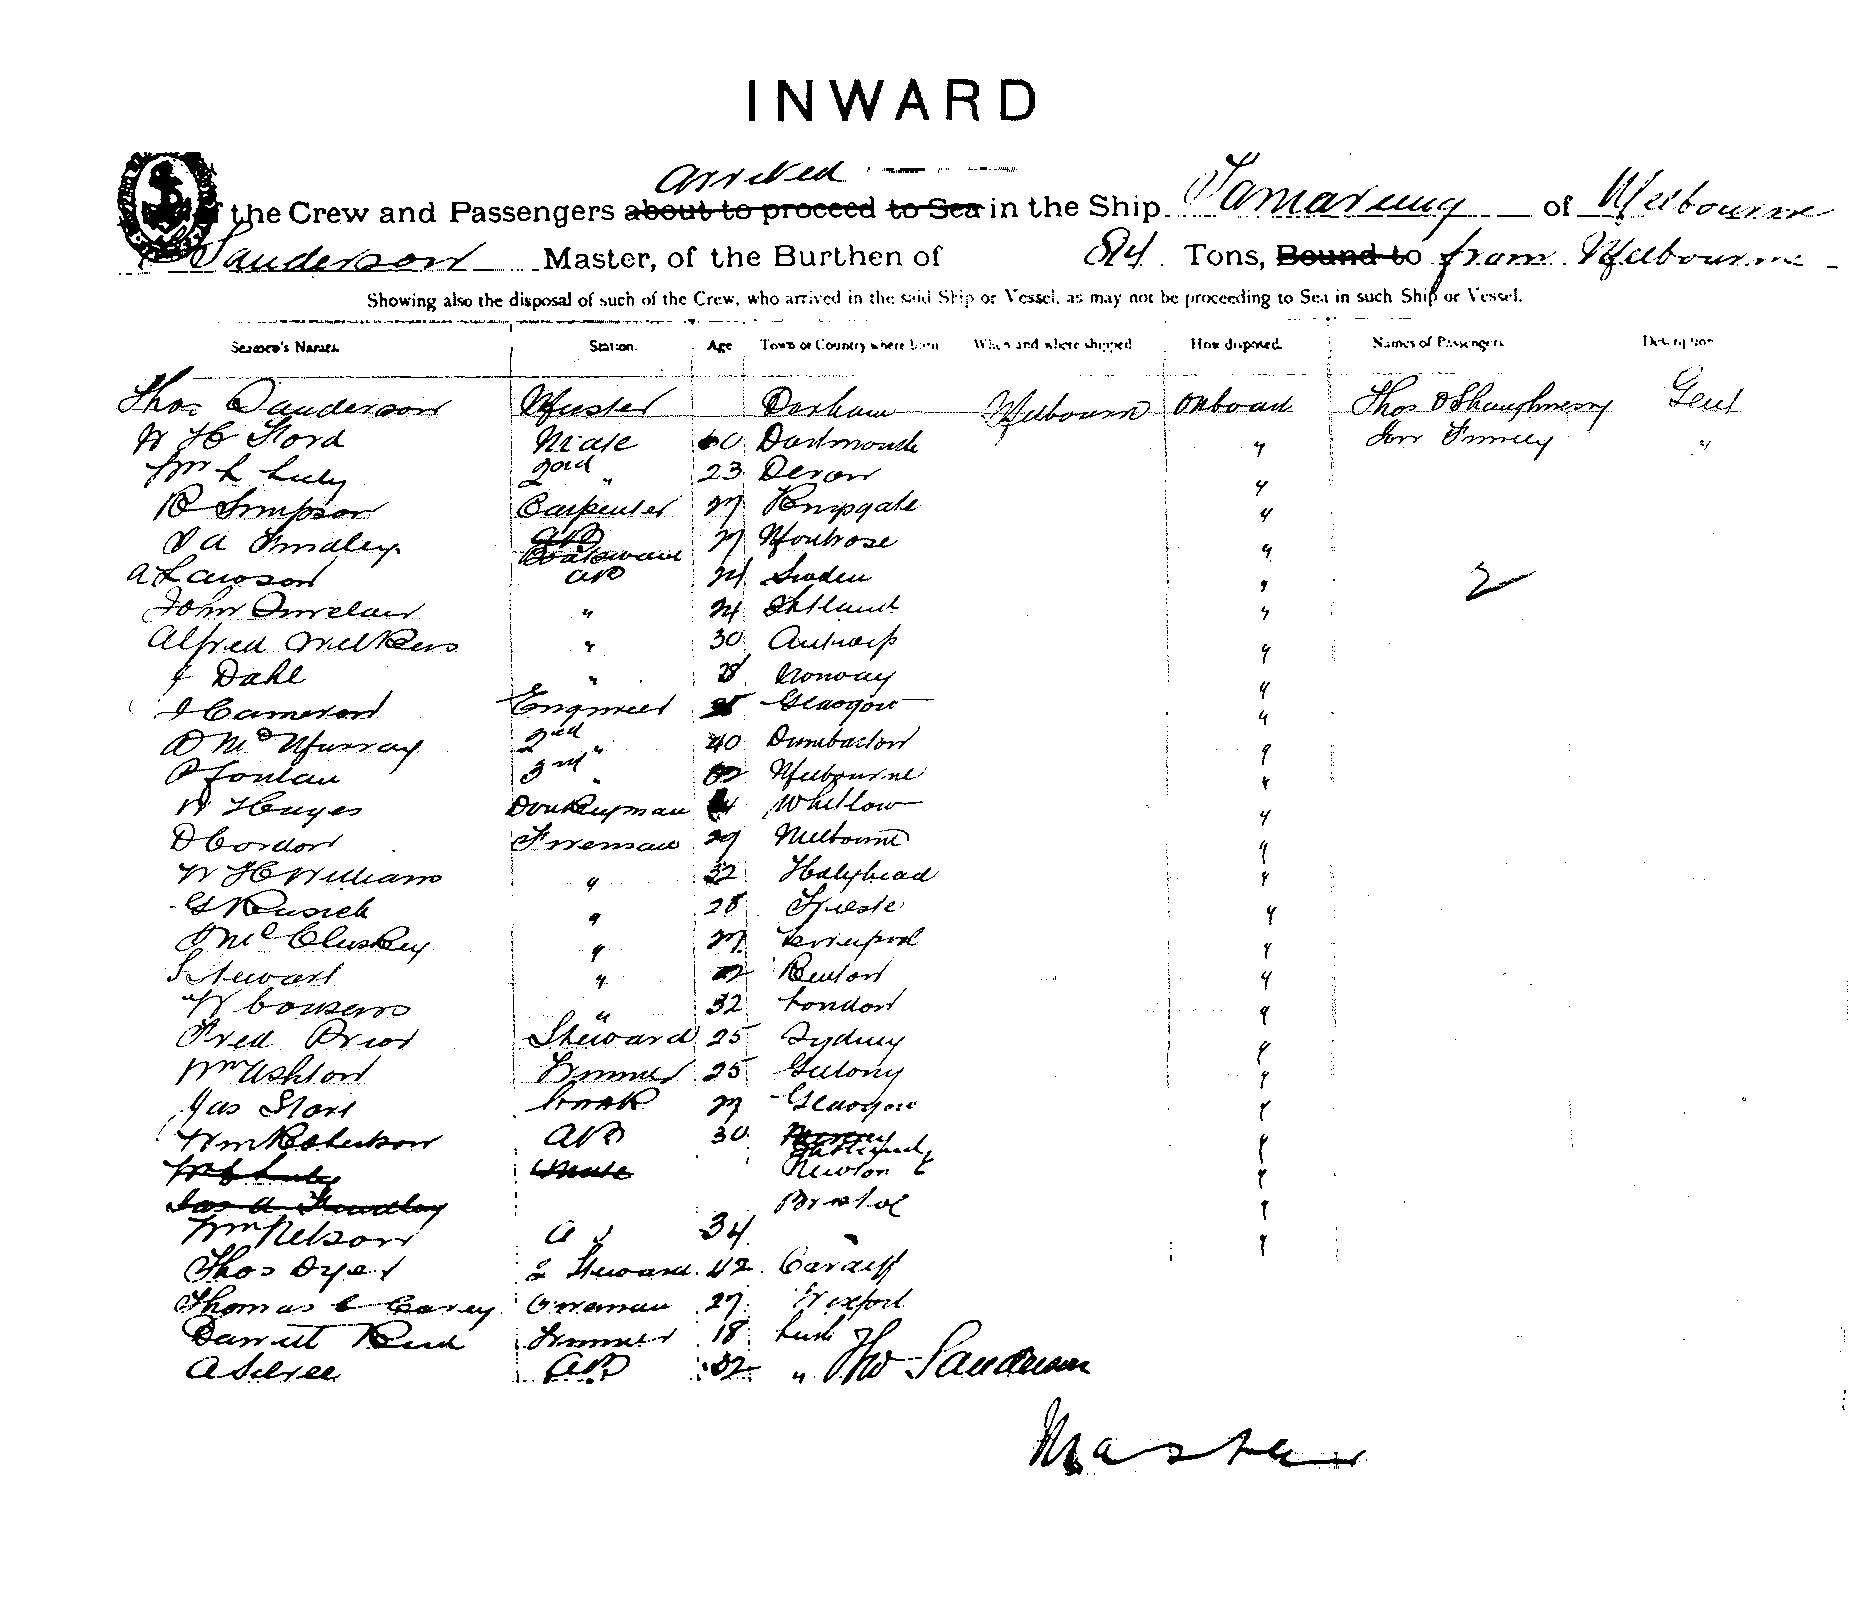 INWARD
arrived
the Crew and Passengers about to proceed to Sea in the Ship of Melbourne
Sanderson Master, of the Burthen of Tons, Bound to from Melbourne
Showing also the disposal of such of the Crew, who arrived in the said Ship or Vessel, as may not be proceeding to Sea in such Ship or Vessel.
Seamen's Names. Station. Age Town or Country where born When and where shipped How disposed. Names of Passengers Description
Thos Sanderson Master Durham Melbourne Onboard Thos O'Shaughnessy Gent
W H Ford Mate 60 Dartmouth " "
Wm L Luly 2nd " 23 Devon "
R Simpson Carpenter 27 "
J A Findley AB Boatswain 27 Montrose "
A Lawson AB 24 "
2
John Sinclair " 24 Shetland "
Alfred " 30 Antwerp "
J Dahl " Norway "
J Cameron Engineer Glasgow "
D Murray 2nd " 40 Dumbarton "
3rd " Melbourne "
W Hayes Donkeyman "
D Gordon Fireman 29 Melbourne "
W H Williams " 32 Holyhead "
G Rusich " 28 Trieste "
J McCluskey " 27 Liverpool "
Stewart " Renton "
W Cousens " 32 London "
Fred Prior Steward 25 Sydney "
Wm Ashton Trimmer 25 "
Jas Cook 27 Glasgow "
Wm Robertson AB 30 "
W L Luly Mate Newton "
Jas A Findley Bristol "
Wm Nelson 34 "
Thos Dyer 2 Steward 42 Cardiff
Thomas C Carey Fireman 27 Wexford
Reid Trimmer 18
AB 32 " Tho Sanderson
Master